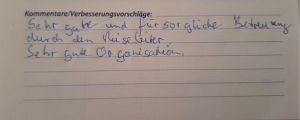 Kommentare/Verbesserungsvorschläge:
Sehr gute und fürsorgliche Betreuung
durch den Reiseleiter
Sehr gute Organisation.